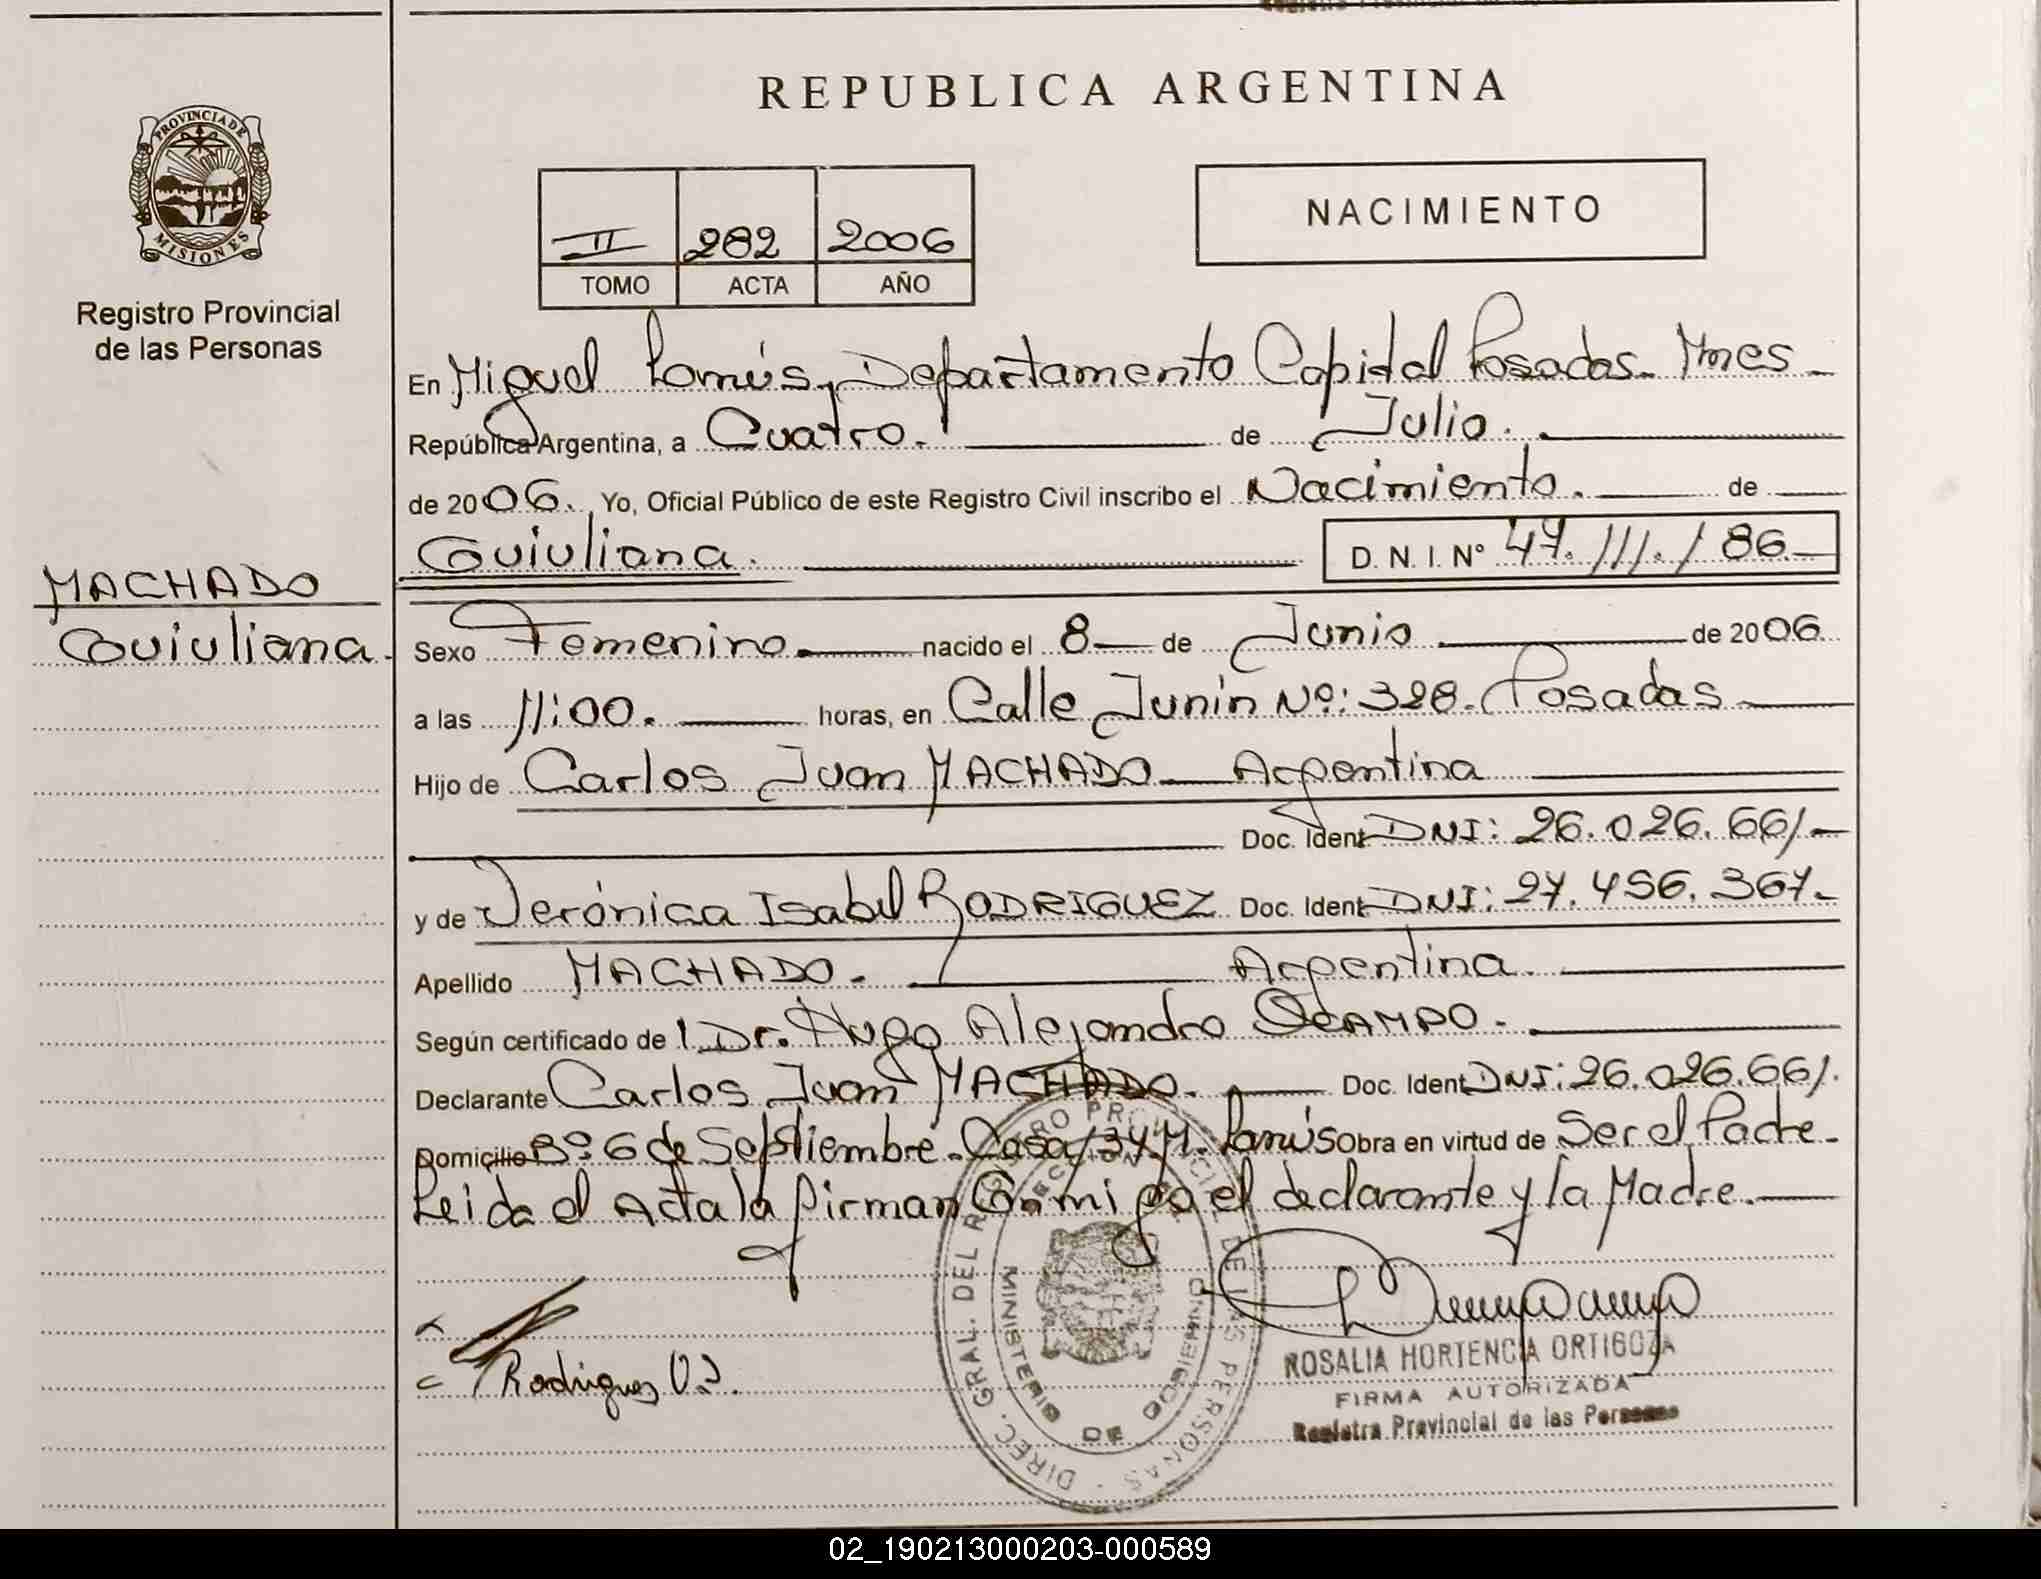 REPUBLICA ARGENTINA
PROVINCIA DE
MISIONES
Registro Provincial
de las Personas
II 282 2006
TOMO ACTA AÑO
NACIMIENTO
En Miguel Lanús, Departamento Capital Posadas. Mnes
República Argentina, a Cuatro. de Julio.
de 2006. Yo, Oficial Público de este Registro Civil inscribo el Nacimiento. de
Guiuliana. D. N. I. N° 47.111.186.
MACHADO
Guiuliana.
Sexo Femenino. nacido el 8 de Junio de 2006.
a las 11:00. horas, en Calle Junin Nº: 328. Posadas
Hijo de Carlos Juan MACHADO Argentina
Doc. Ident. DNI: 26.026.661.
y de Verónica Isabel RODRIGUEZ Doc. Ident. DNI: 27.456.367.
Apellido MACHADO. Argentina.
Según certificado de l Dr. Hugo Alejandro OCAMPO.
Declarante Carlos Juan MACHADO. Doc. Ident. DNI: 26.026.661.
Domicilio Bº 6 de Septiembre. Casa 134 M. Lanús Obra en virtud de Ser el Padre.
Leida el Acta la firman Conmigo el declarante y la Madre.
Rodriguez V.I.
DIREC. GRAL. DEL REGISTRO PROVINCIAL DE LAS PERSONAS
DIRECCION
MINISTERIO DE GOBIERNO
ROSALIA HORTENCIA ORTIGOZA
FIRMA AUTORIZADA
Registro Provincial de las Personas
02_190213000203-000589